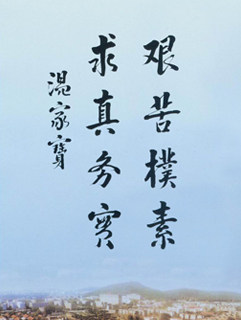 艰苦樸素
求真务实
温家宝